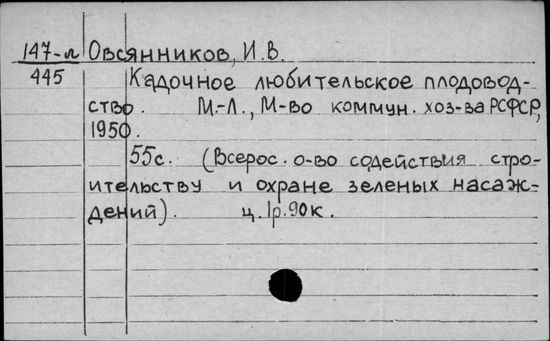 147-л Овсянников, И.В.
445 Кадочное любительское плодовод-
ство. М.-Л., М-во коммун. хоз-ва РСФСР,
1950.
55с. (Всерос. о-во содействия стро-
ительству и охране зеленых насаж-
дений). ц. 1р.90к.